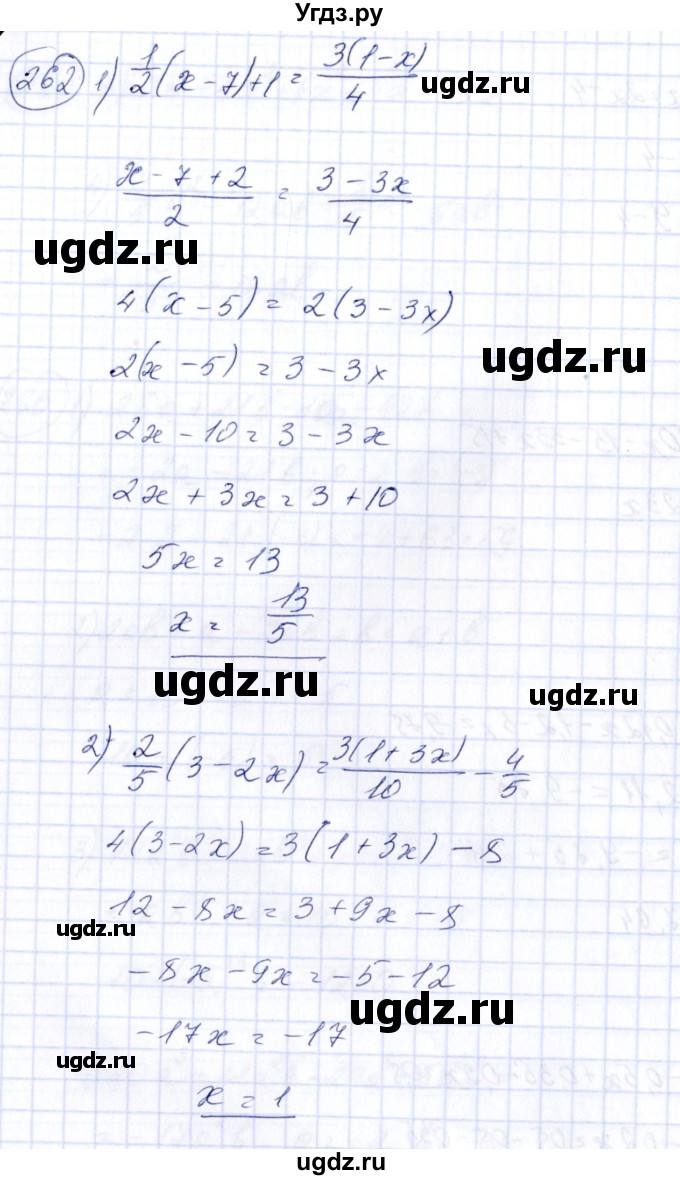 Угдз.ру
262 1) 1/2 (x - 7) + 1 = 3(1-x)/4
ugdz.ru
(x - 7 + 2)/2 = (3 - 3x)/4
ugdz.ru
4(x - 5) = 2(3 - 3x)
ugdz.ru
2(x - 5) = 3 - 3x
2x - 10 = 3 - 3x
ugdz.ru
2x + 3x = 3 + 10
5x = 13
x = 13/5
ugdz.ru
ugdz.ru
2) 2/5 (3 - 2x) = 3(1 + 3x)/10 - 4/5
4(3 - 2x) = 3(1 + 3x) - 8
12 - 8x = 3 + 9x - 8
ugdz.ru
-8x - 9x = -5 - 12
ugdz.ru
-17x = -17
ugdz.ru
x = 1
ugdz.ru